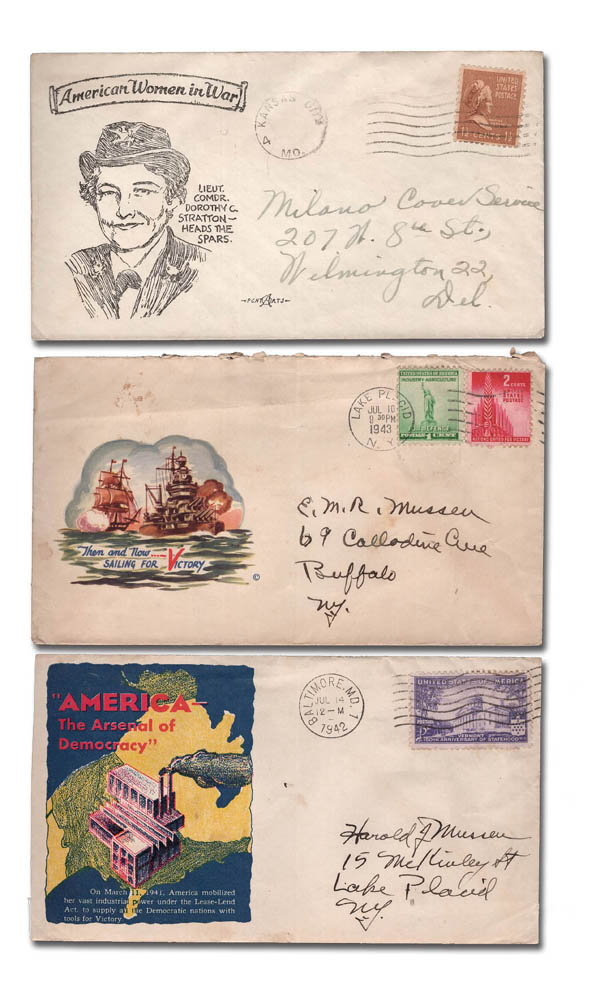 American Women in War
LIEUT.
COMDR.
DOROTHY C.
STRATTON—
HEADS THE
SPARS.
4 KANSAS CITY
MO.
UNITED
STATES
POSTAGE
Milano Cover Service
207 W. 8th St.,
Wilmington 22,
Del.
Then and Now.....
SAILING FOR VICTORY
©
LAKE PLACID
JUL 10
9 30 PM
1943
N.Y.
UNITED STATES OF AMERICA
INDUSTRY AGRICULTURE
FOR DEFENSE
POSTAGE 1 CENT
2 CENTS
UNITED STATES
POSTAGE
NATIONS UNITED FOR VICTORY
E. M. R. Mussen
69 Callodine Ave
Buffalo
N.Y.
"AMERICA—
The Arsenal of
Democracy"
On March 11, 1941, America mobilized
her vast industrial power under the Lease-Lend
Act. to supply all the Democratic nations with
tools for Victory.
BALTIMORE, MD. 1
JUL 14
12-M
1942
UNITED STATES OF AMERICA
VERMONT
150TH ANNIVERSARY OF STATEHOOD
Harold J Mussen
15 McKinley St
Lake Placid
N.Y.